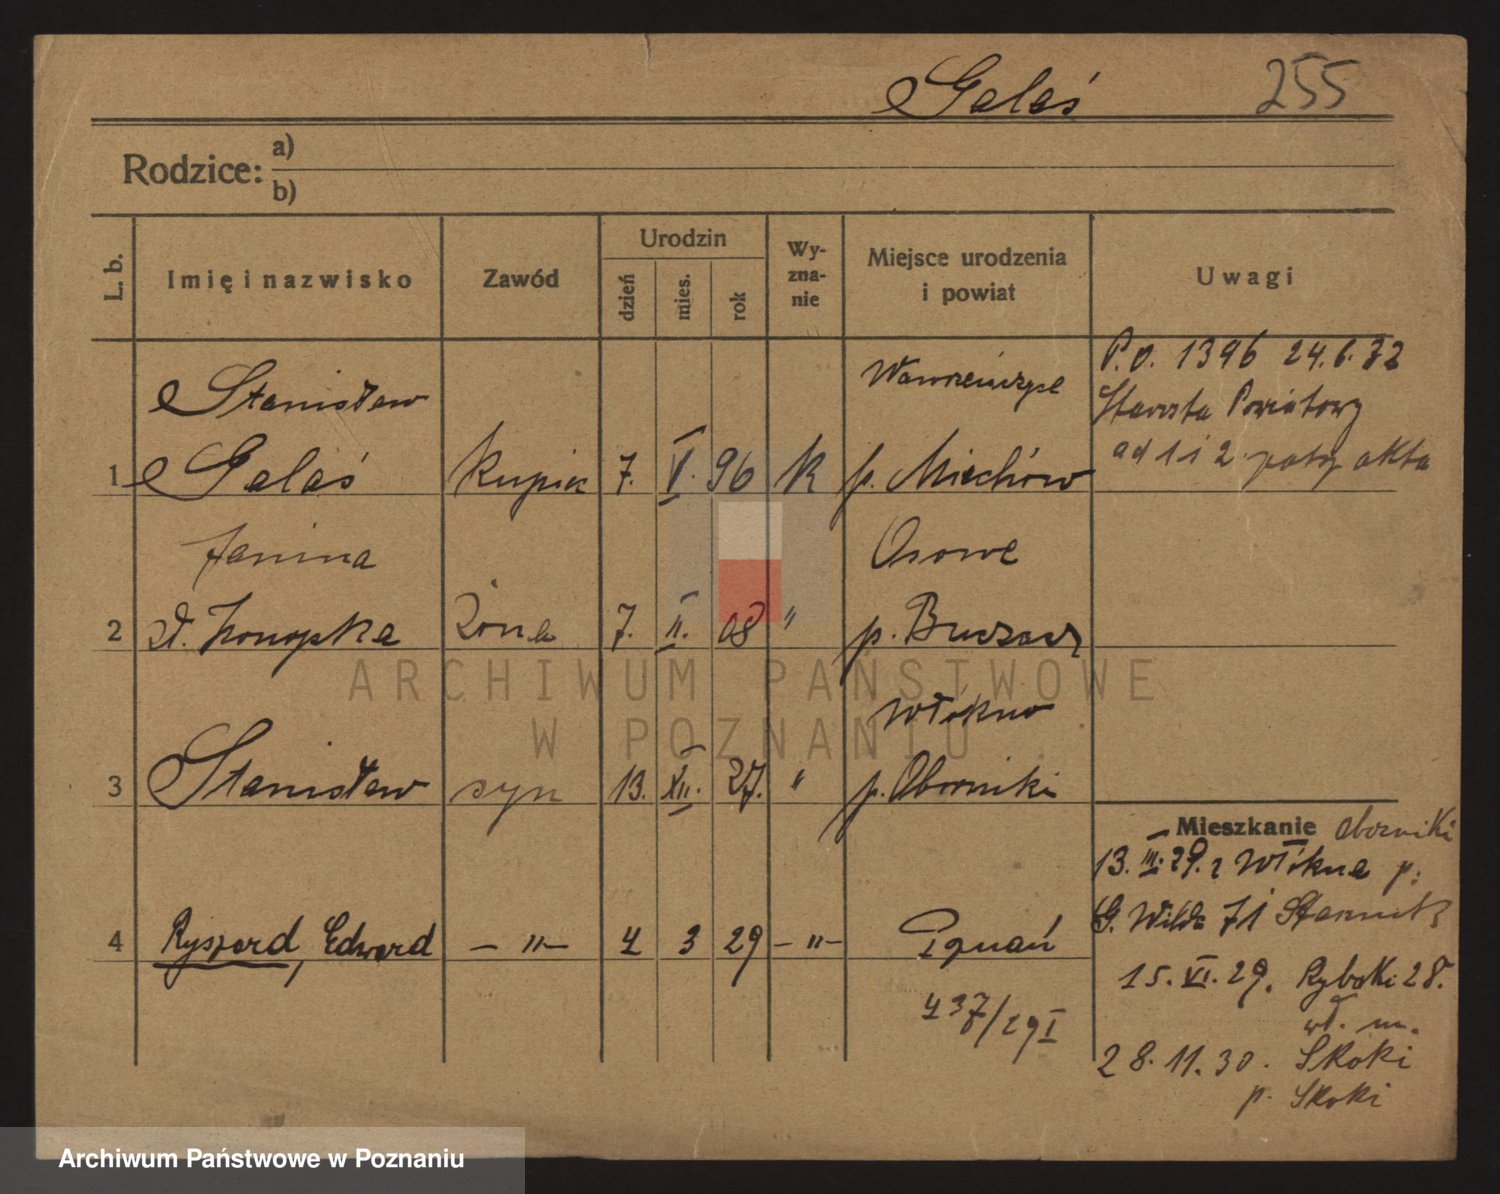 Galaś 255
Rodzice: a)
b)
L. b. Imię i nazwisko Zawód Urodzin dzień mies. rok Wyznanie Miejsce urodzenia i powiat Uwagi
P.O. 1396 24.6.32
Stanisław
Starosta Powiatowy
1 Galaś Kupiec 7. V. 96 K p. Miechów
ad 1 i 2 akta
Janina Osowe
2 Konopka Żona 7. II. 08 " p. Buczacz
Włókno
3 Stanisław syn 13. XII. 27. " p. Oborniki
Mieszkanie Oborniki
13. III. 29. z Włókna p.
G. Wilda 71
4 Ryszard, Edward — " — 4 3 29 — " — Poznań
15. VI. 29. Rybaki 28.
wł. m.
437/29 I
28. 11. 30. Skoki
p. Skoki
ARCHIWUM PAŃSTWOWE
W POZNANIU
Archiwum Państwowe w Poznaniu